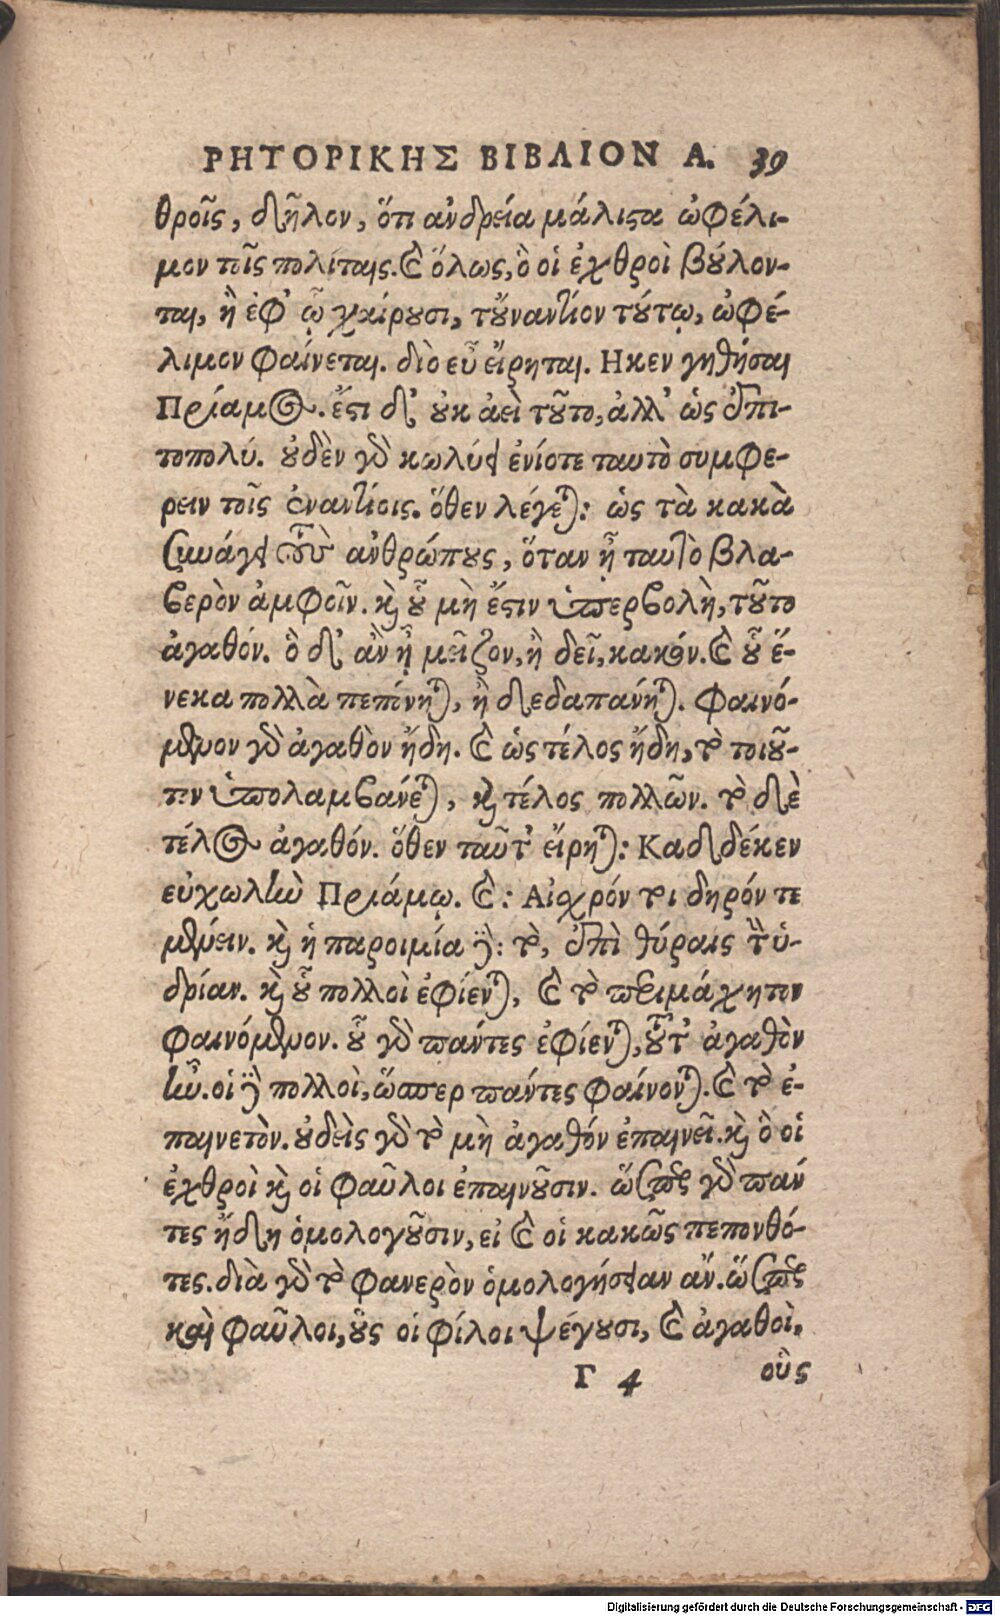 ΡΗΤΟΡΙΚΗΣ ΒΙΒΛΙΟΝ Α. 39
θροῖς, δῆλον, ὅτι ἀνδρεία μάλιστα ὠφέλι-
μον τοῖς πολίταις. καὶ ὅλως, ὃ οἱ ἐχθροὶ βούλον-
ται, ἢ ἐφ' ᾧ χαίρουσι, τοὐναντίον τούτῳ, ὠφέ-
λιμον φαίνεται. διὸ εὖ εἴρηται. Η κεν γηθήσαι
Πρίαμος. ἔστι δ' οὐκ ἀεὶ τοῦτο, ἀλλ' ὡς ἐπι-
τοπολύ. οὐδὲν γὰρ κωλύει ἐνίοτε ταυτὸ συμφέ-
ρειν τοῖς ἐναντίοις. ὅθεν λέγεται: ὡς τὰ κακὰ
συνάγει τοὺς ἀνθρώπους, ὅταν ᾖ ταυτὸ βλα-
βερὸν ἀμφοῖν. καὶ οὗ μὴ ἔστιν ὑπερβολὴ, τοῦτο
ἀγαθόν. ὃ δ' ἂν ᾖ μεῖζον, ἢ δεῖ, κακόν. καὶ οὗ ἕ-
νεκα πολλὰ πεπόνηται, ἢ δεδαπάνηται. φαινό-
μενον γὰρ ἀγαθὸν ἤδη. καὶ ὡς τέλος ἤδη, τὸ τοιοῦ-
τον ὑπολαμβάνεται, καὶ τέλος πολλῶν. τὸ δὲ
τέλος ἀγαθόν. ὅθεν ταῦτ' εἴρηται: Καδδέκεν
εὐχωλὴν Πριάμῳ. καὶ: Αἰχρόν τοι δηρόν τε
μένειν. καὶ ἡ παροιμία δὲ: τὸ, ἐπὶ θύραις τὴν ὑ-
δρίαν. καὶ οὗ πολλοὶ ἐφίενται, καὶ τὸ περιμάχητον
φαινόμενον. οὗ γὰρ πάντες ἐφίενται, τοῦτ' ἀγαθὸν
ἦν. οἱ δὲ πολλοὶ, ὥσπερ πάντες φαίνονται. καὶ τὸ ἐ-
παινετὸν. οὐδεὶς γὰρ τὸ μὴ ἀγαθόν ἐπαινεῖ. καὶ ὃ οἱ
ἐχθροὶ καὶ οἱ φαῦλοι ἐπαινοῦσιν. ὥσπερ γὰρ πάν
τες ἤδη ὁμολογοῦσιν, εἰ καὶ οἱ κακῶς πεπονθό-
τες. διὰ γὰρ τὸ φανερὸν ὁμολογήσειαν ἄν. ὥσπερ
καὶ φαῦλοι, οὓς οἱ φίλοι ψέγουσι, καὶ ἀγαθοὶ,
Γ 4 οὓς
Digitalisierung gefördert durch die Deutsche Forschungsgemeinschaft - DFG